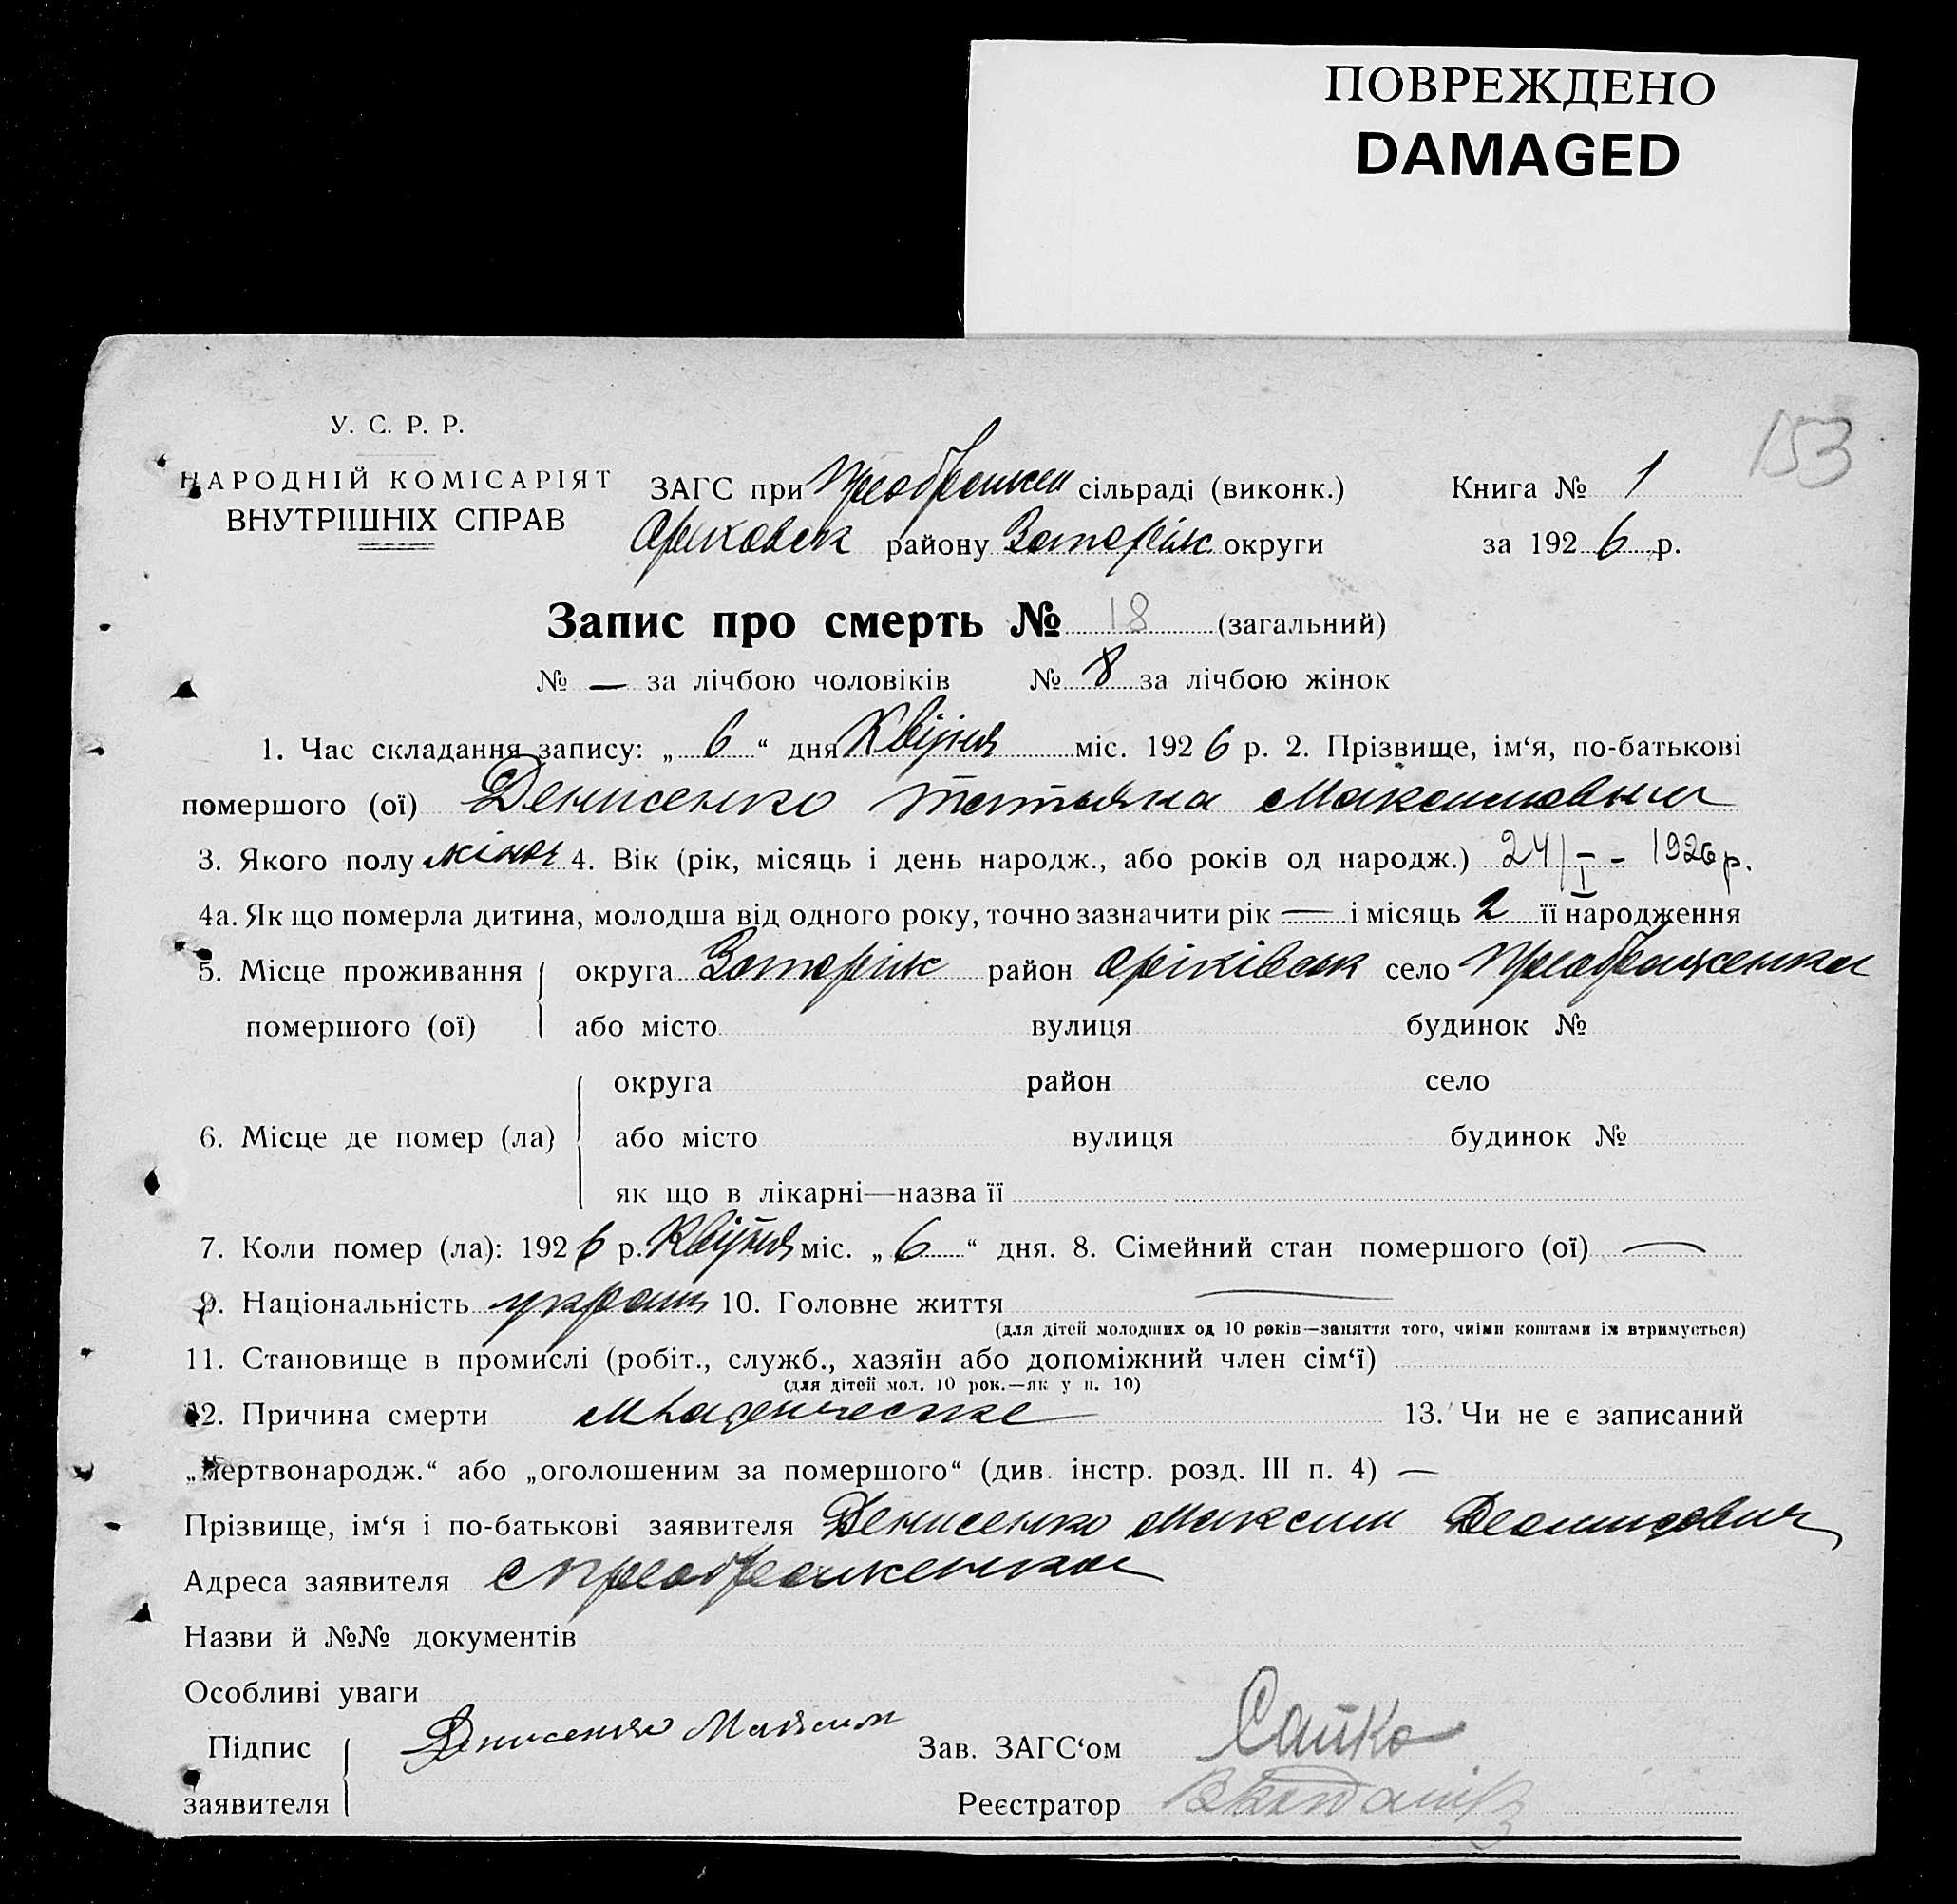 ПОВРЕЖДЕНО
DAMAGED
153
У. С. Р. Р.
НАРОДНІЙ КОМІСАРІЯТ
ВНУТРІШНІХ СПРАВ
ЗАГС при Преображен сільраді (виконк.) Книга № 1
районy Запоріж округи за 1926 р.
Запис про смерть № 18 (загальний)
№ — за лічбою чоловіків № 8 за лічбою жінок
1. Час складання запису: „ 6 “ дня Квітня міс. 1926 р. 2. Прізвище, ім‘я, по-батькові
помершого (ої) Денисенко Татьяна Максимовна
3. Якого полу жіноч 4. Вік (рік, місяць і день народж., або років од народж.) 24/I - 1926 р.
4а. Як що померла дитина, молодша від одного року, точно зазначити рік — і місяць 2 її народження
5. Місце проживання округа Запоріж район Оріківськ село Преображенка
помершого (ої) або місто вулиця будинок №
округа район село
6. Місце де помер (ла) або місто вулиця будинок №
як що в лікарні—назва її
7. Коли помер (ла): 1926 р. Квітня міс. „ 6 “ дня. 8. Сімейний стан помершого (ої) —
9. Національність украин 10. Головне життя —
(для дітей молодших од 10 років—заняття того, чиїми коштами їх втримується)
11. Становище в промислі (робіт., служб., хазяїн або допоміжний член сім‘ї)
(для дітей мол. 10 рок.—як у п. 10)
12. Причина смерти младенческе 13. Чи не є записаний
„мертвонародж.“ або „оголошеним за помершого“ (див. інстр. розд. III п. 4) —
Прізвище, ім‘я і по-батькові заявителя Денисенко Максим
Адреса заявителя с Преображенка
Назви й №№ документів
Особливі уваги
Підпис Денисенко Максим Зав. ЗАГС‘ом Сайко
заявителя Реєстратор